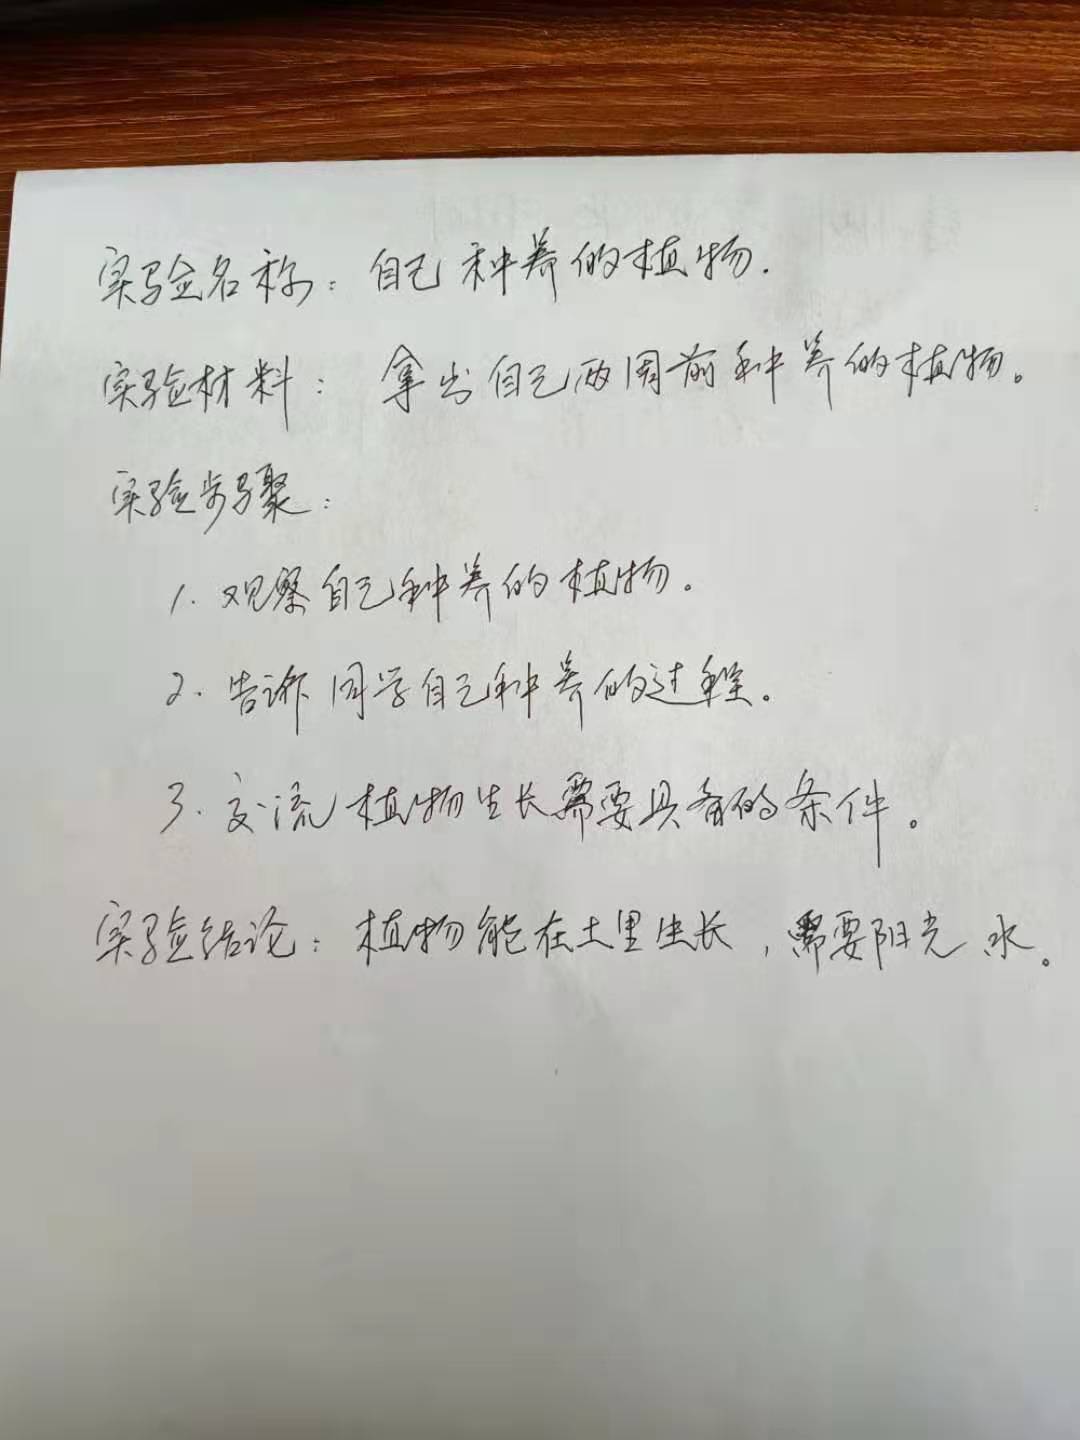 实验名称：自己种养的植物.
实验材料：拿出自己两周前种养的植物。
实验步骤：
1.观察自己种养的植物。
2.告诉同学自己种养的过程。
3.交流植物生长需要具备的条件。
实验结论：植物能在土里生长，需要阳光 水。